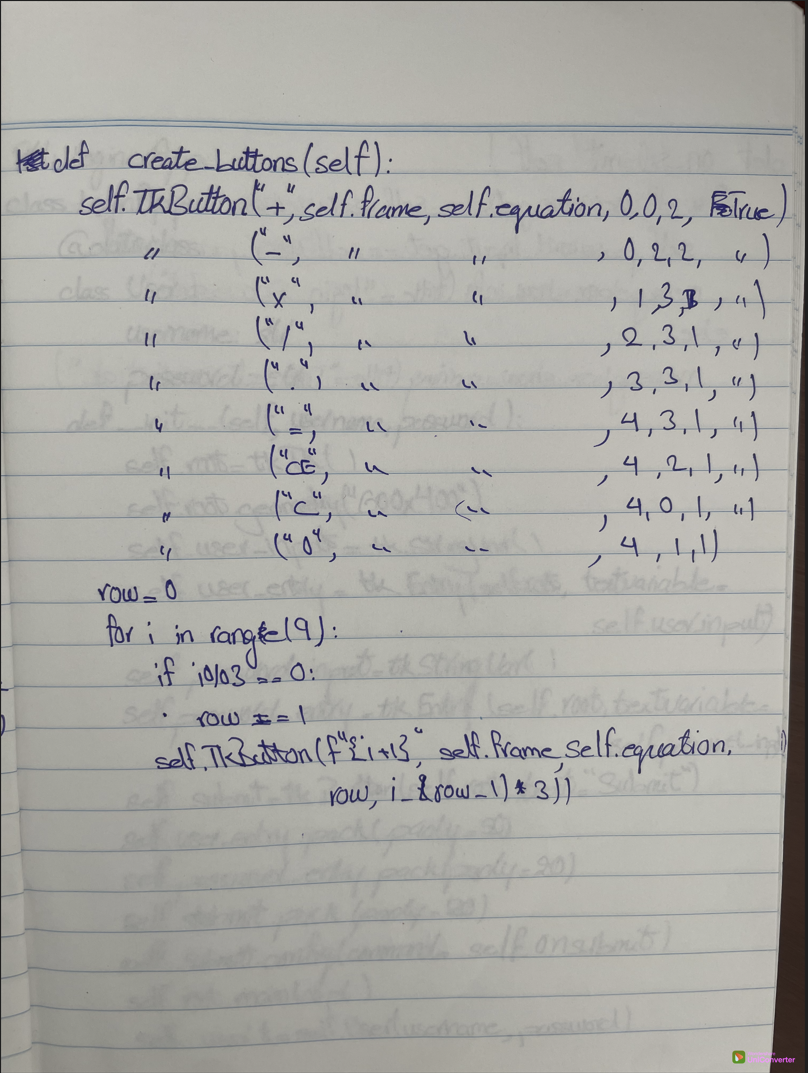 def create_buttons(self):
self.TkButton("+", self.frame, self.equation, 0,0,2, True)
" ("-", " " , 0,2,2, ")
" ("x", " " , 1,3,1, ")
" ("/", " " , 2,3,1, ")
" (".", " " , 3,3,1, ")
" ("=", " " , 4,3,1, ")
" ("CE", " " , 4,2,1, ")
" ("C", " " , 4,0,1, ")
" ("0", " " , 4,1,1)
row=0
for i in range(9):
if i%3 == 0:
row += 1
self.TkButton(f"{i+1}", self.frame, self.equation,
row, i-((row-1)*3))